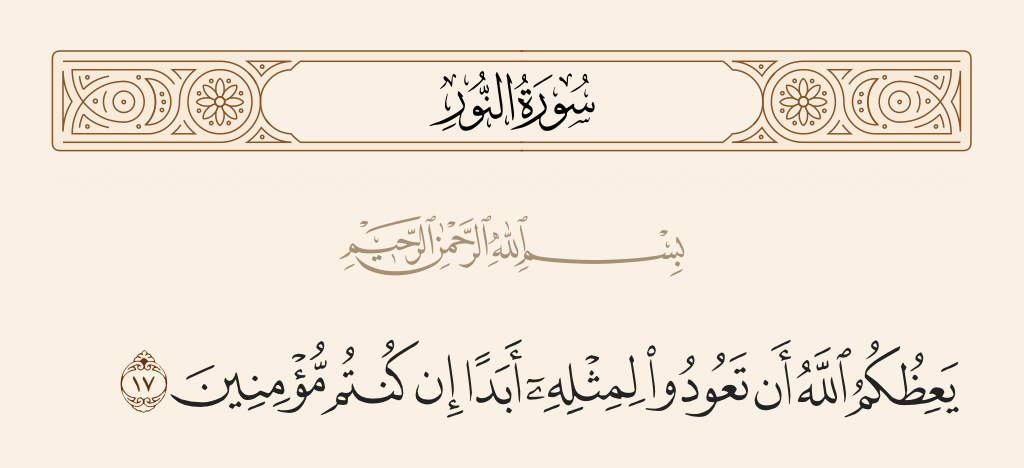 سُورَةُ النُّورِ
بِسْمِ ٱللَّهِ ٱلرَّحْمَٰنِ ٱلرَّحِيمِ
يَعِظُكُمُ ٱللَّهُ أَن تَعُودُوا۟ لِمِثْلِهِۦٓ أَبَدًا إِن كُنتُم مُّؤْمِنِينَ ١٧